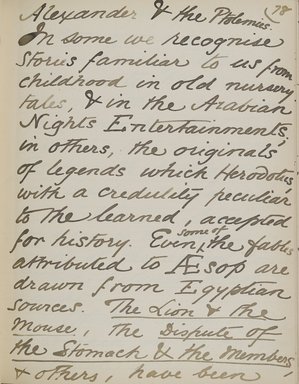 78
Alexander & the Ptolemies.
In some we recognise
stories familiar to us from
childhood in old nursery
tales, & in the Arabian
Nights Entertainments;
in others, the originals
of legends which Herodotus,
with a credulity peculiar
to the learned, accepted
for history. Even some of the fables
attributed to Æsop are
drawn from Egyptian
sources. The Lion & the
Mouse, the Dispute of
the Stomach & the Members,
& others, have been